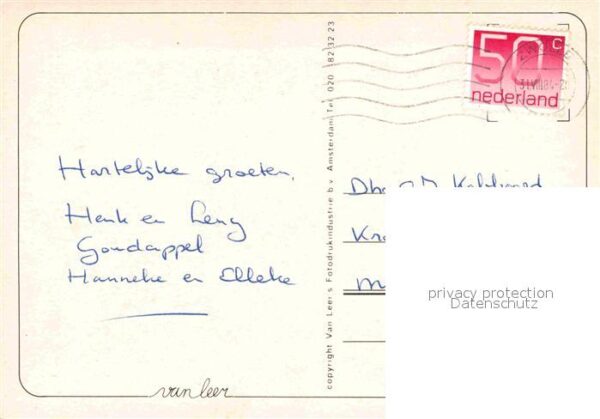 Hartelijke groeten.
Henk en Leny
Goudappel
Hanneke en Elleke
van leer
copyright Van Leer's Fotodrukindustrie b.v. Amsterdam Tel. 020 - 82 32 23
50 c
nederland
Dhr
Kr
M
privacy protection
Datenschutz